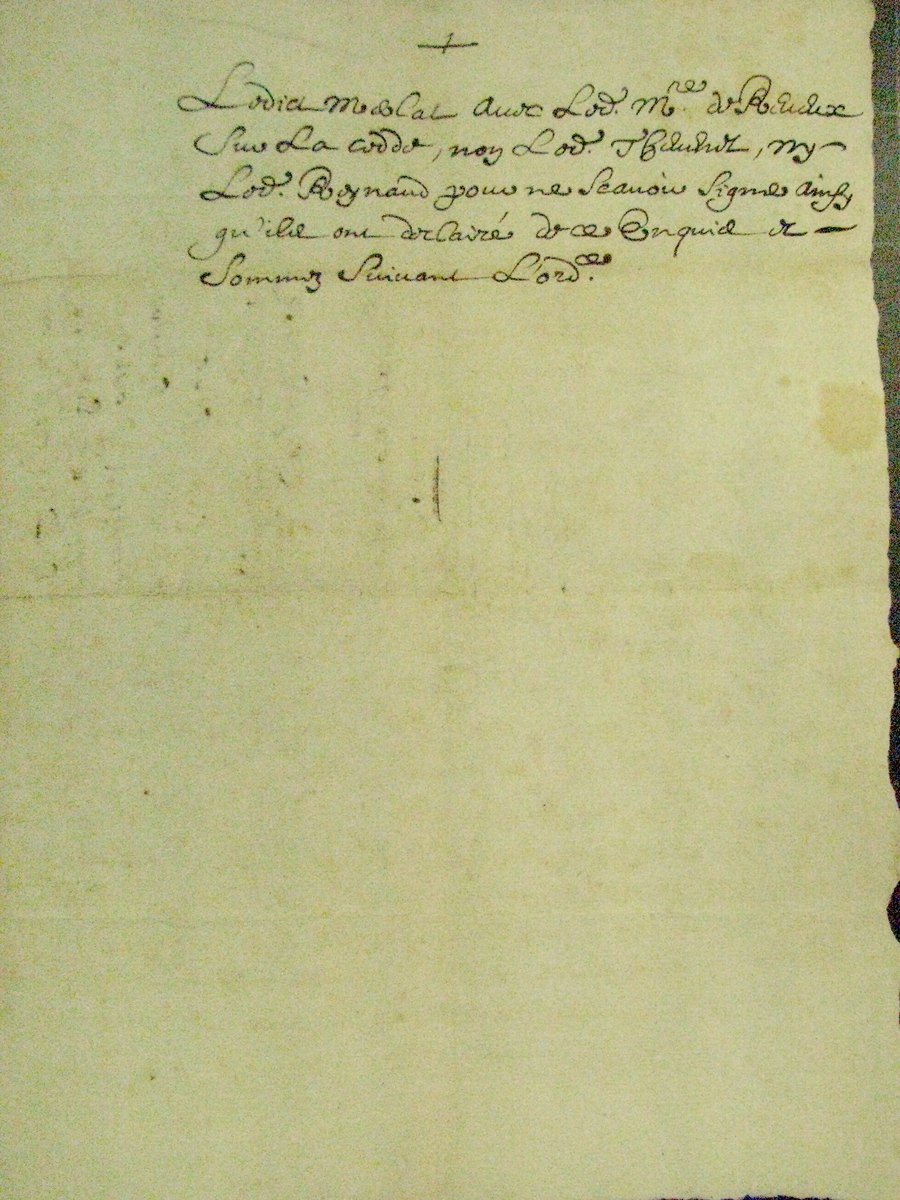 Ledict Meslat avec Led. Mre. de Reveux
Sur La cedde, non Led. Thevenet, ny
Led. Reynaud pour ne Scavoir Signer Ainsy
qu'ilz ont declairé de ce Enquis et
Sommez Suivant L'ordce.